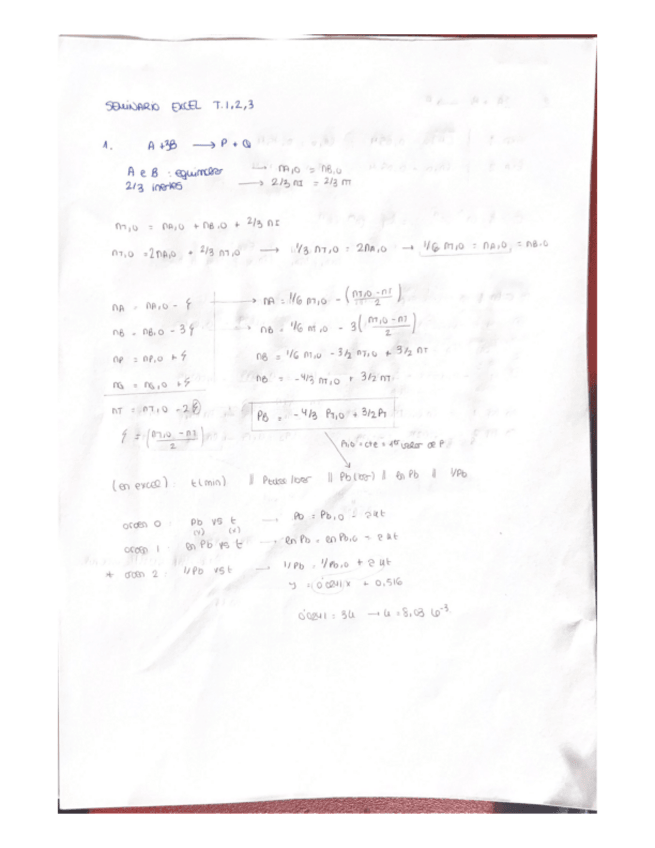 SEMINARIO EXCEL T.1,2,3
1. A + 3B → P + Q
A e B : equimolar → nA,0 = nB,0
2/3 inertes → 2/3 nI = 2/3 nT
nT,0 = nA,0 + nB,0 + 2/3 nI
nT,0 = 2nA,0 + 2/3 nT,0 → 1/3 nT,0 = 2nA,0 → 1/6 nT,0 = nA,0 = nB,0
nA = nA,0 - ξ → nA = 1/6 nT,0 - (nT,0 - nT / 2)
nB = nB,0 - 3ξ nB = 1/6 nT,0 - 3(nT,0 - nT / 2)
nP = nP,0 + ξ nB = 1/6 nT,0 - 3/2 nT,0 + 3/2 nT
nQ = nQ,0 + ξ nB = -4/3 nT,0 + 3/2 nT
nT = nT,0 - 2ξ PB = -4/3 PT,0 + 3/2 PT
ξ = (nT,0 - nT / 2)
= cte = 1er valor de P
(en excel) : t(min) || Ptotal /torr || Pb(torr) || ln Pb || 1/Pb
orden 0 : Pb vs t → Pb = Pb,0 - akt
(y) (x)
orden 1 : ln Pb vs t → ln Pb = ln Pb,0 - akt
* orden 2 : 1/Pb vs t → 1/Pb = 1/Pb,0 + akt
y = 0'0241x + 0,516
0'0241 = 3k → k = 8,03 10⁻³